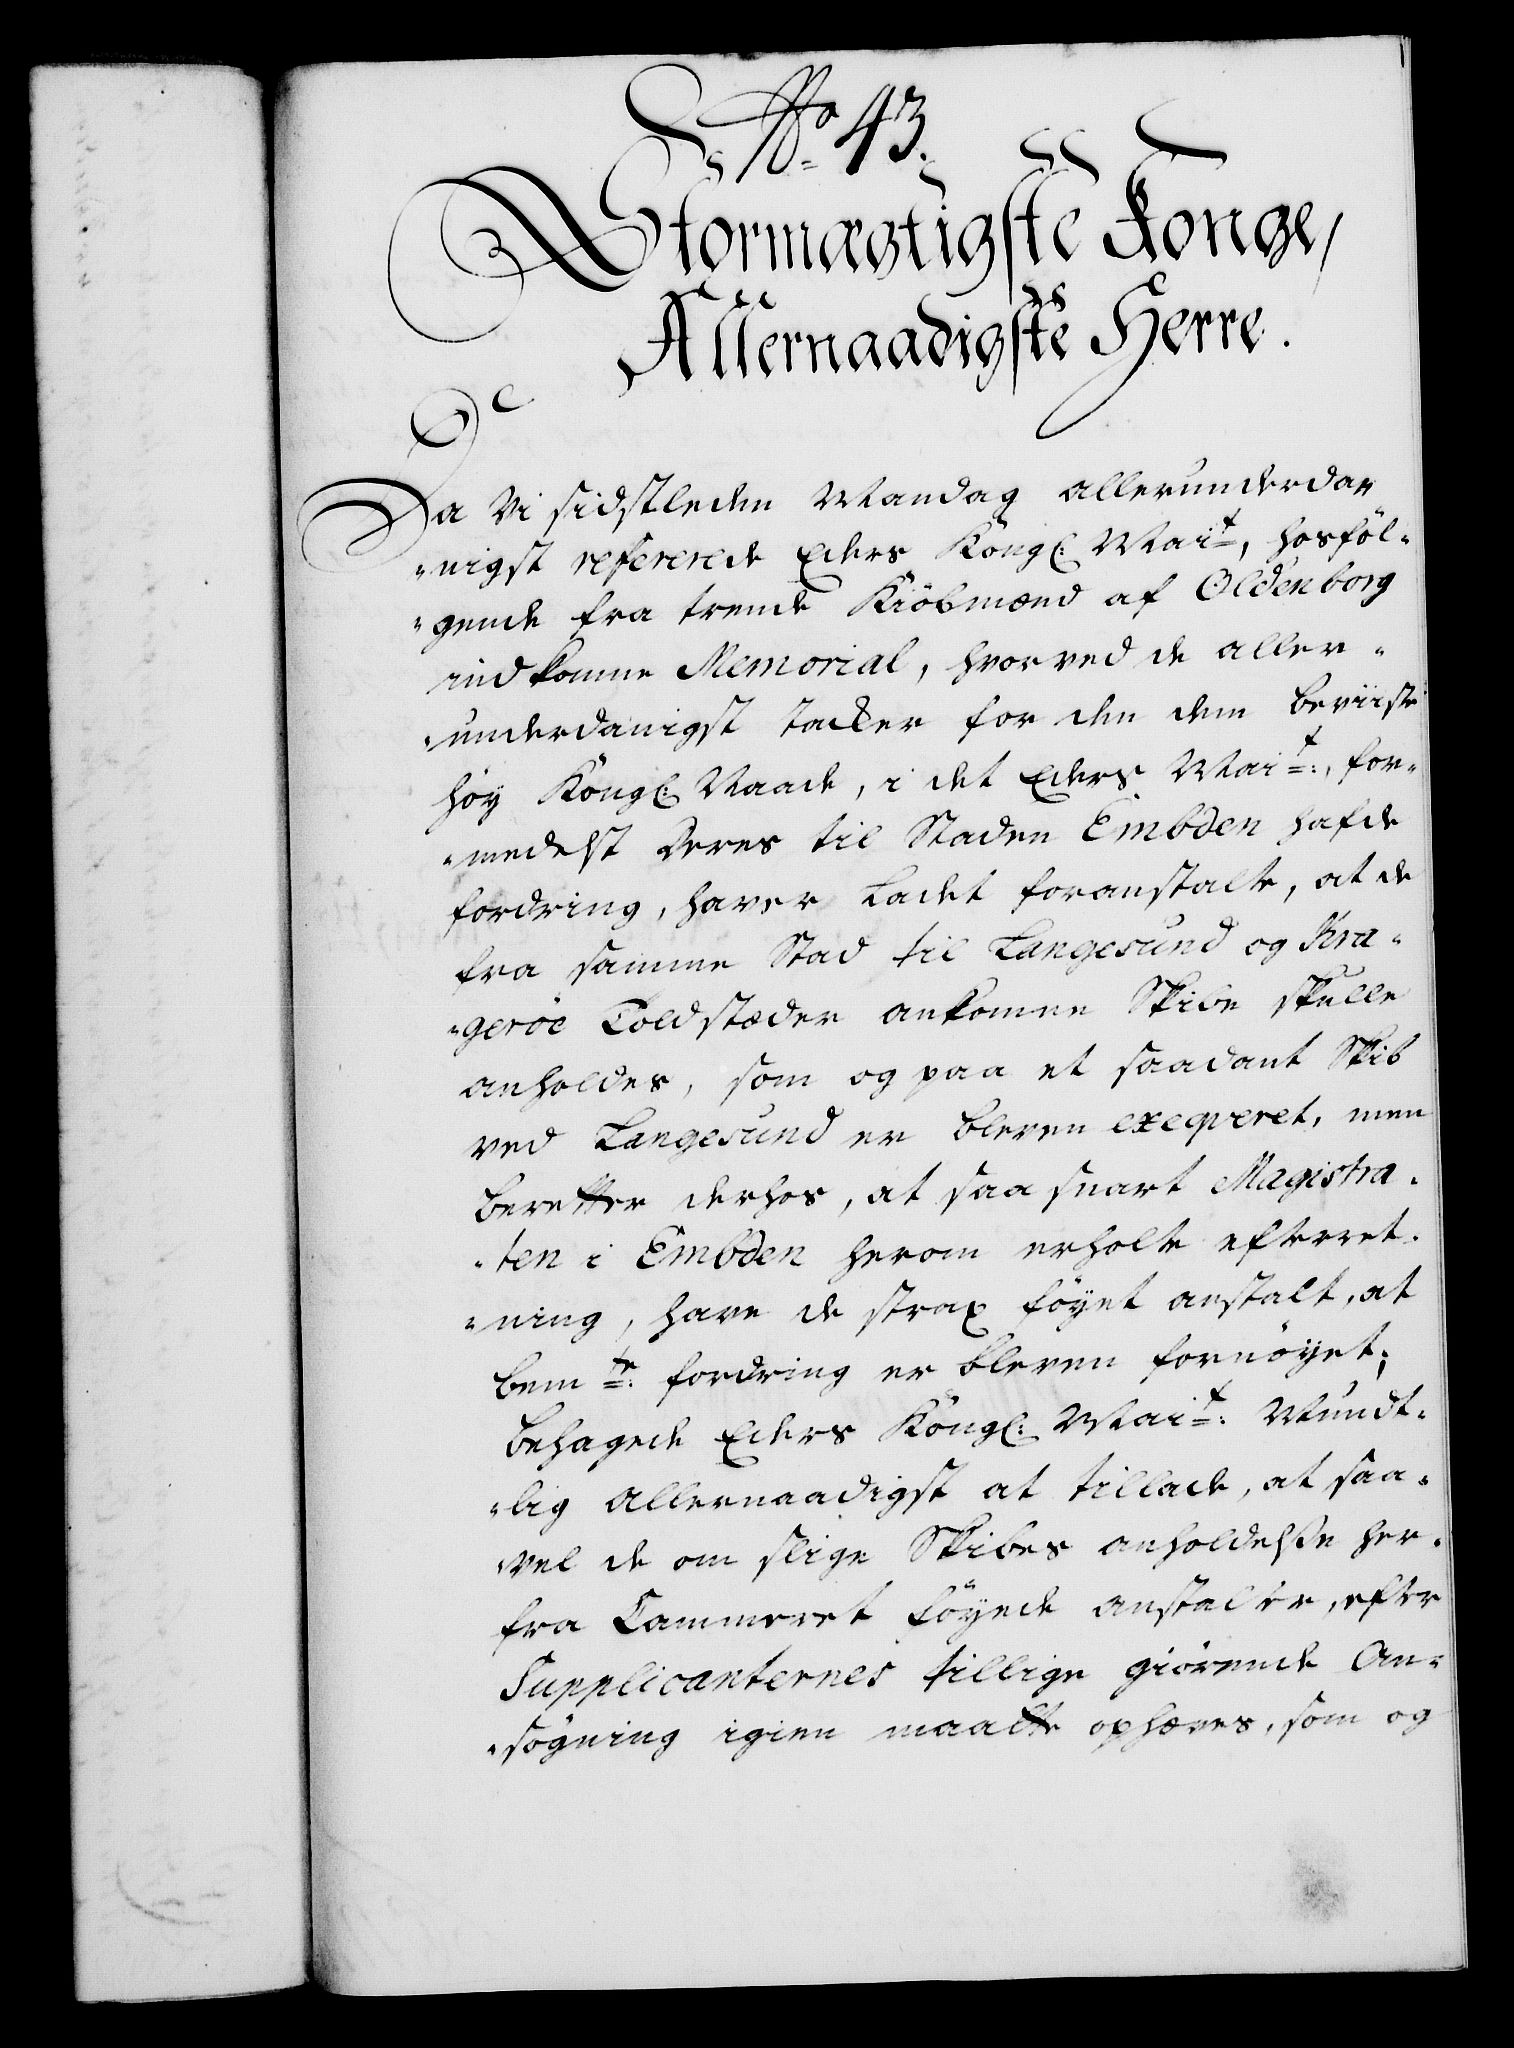 No 43.
Stormægtigste Konge,
Allernaadigste Herre.
Da Vi sidstleden Mandag allerunderda-
-nigst refererede Eders Kongl: Mait, hosföl-
-gende fra trende Kiöbmænd af Oldenborg
indkomne Memorial, hvorved de aller-
-underdanigst takker for den dem beviiste
höy Kongl: Naade, i det Eders Mait:, for-
-medelst deres til Staden Embden hafde
fordring, haver Ladet foranstalte, at de
fra samme Stad til Langesund og Kra-
-geröe Toldstæder ankomne Skibe skulle
anholdes, som og paa et saadant Skib
ved Langesund er bleven exeqveret, men
beretter derhos, at saa snart Magistra-
-ten i Embden herom erholte efterret-
-ning, have de strax föyet anstalt, at
bemte: fordring er bleven fornöyet;
behagede Eders Kongl: Mait: Mundt-
-lig allernaadigst at tillade, at saa-
-vel de om slige Skibes anholdelse her-
fra Cammeret föyede anstalter, efter
Supplicanternes tillige giörende An-
-sögning igien maatte ophæves, som og